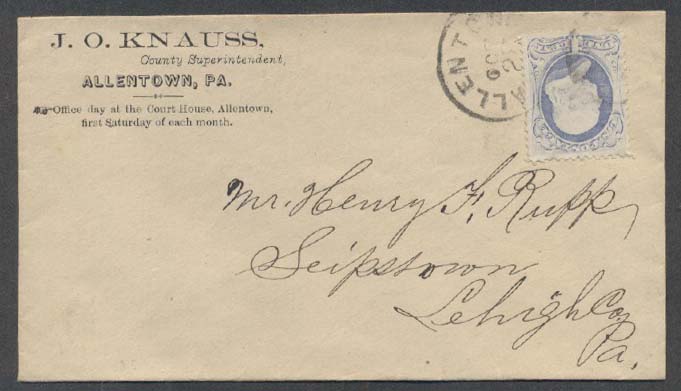 J. O. KNAUSS,
County Superintendent,
ALLENTOWN, PA.
Office day at the Court House, Allentown,
first Saturday of each month.
ALLENTOWN
OCT
Mr. Henry F. Rupp,
Seipstown
Lehigh Co,
Pa.